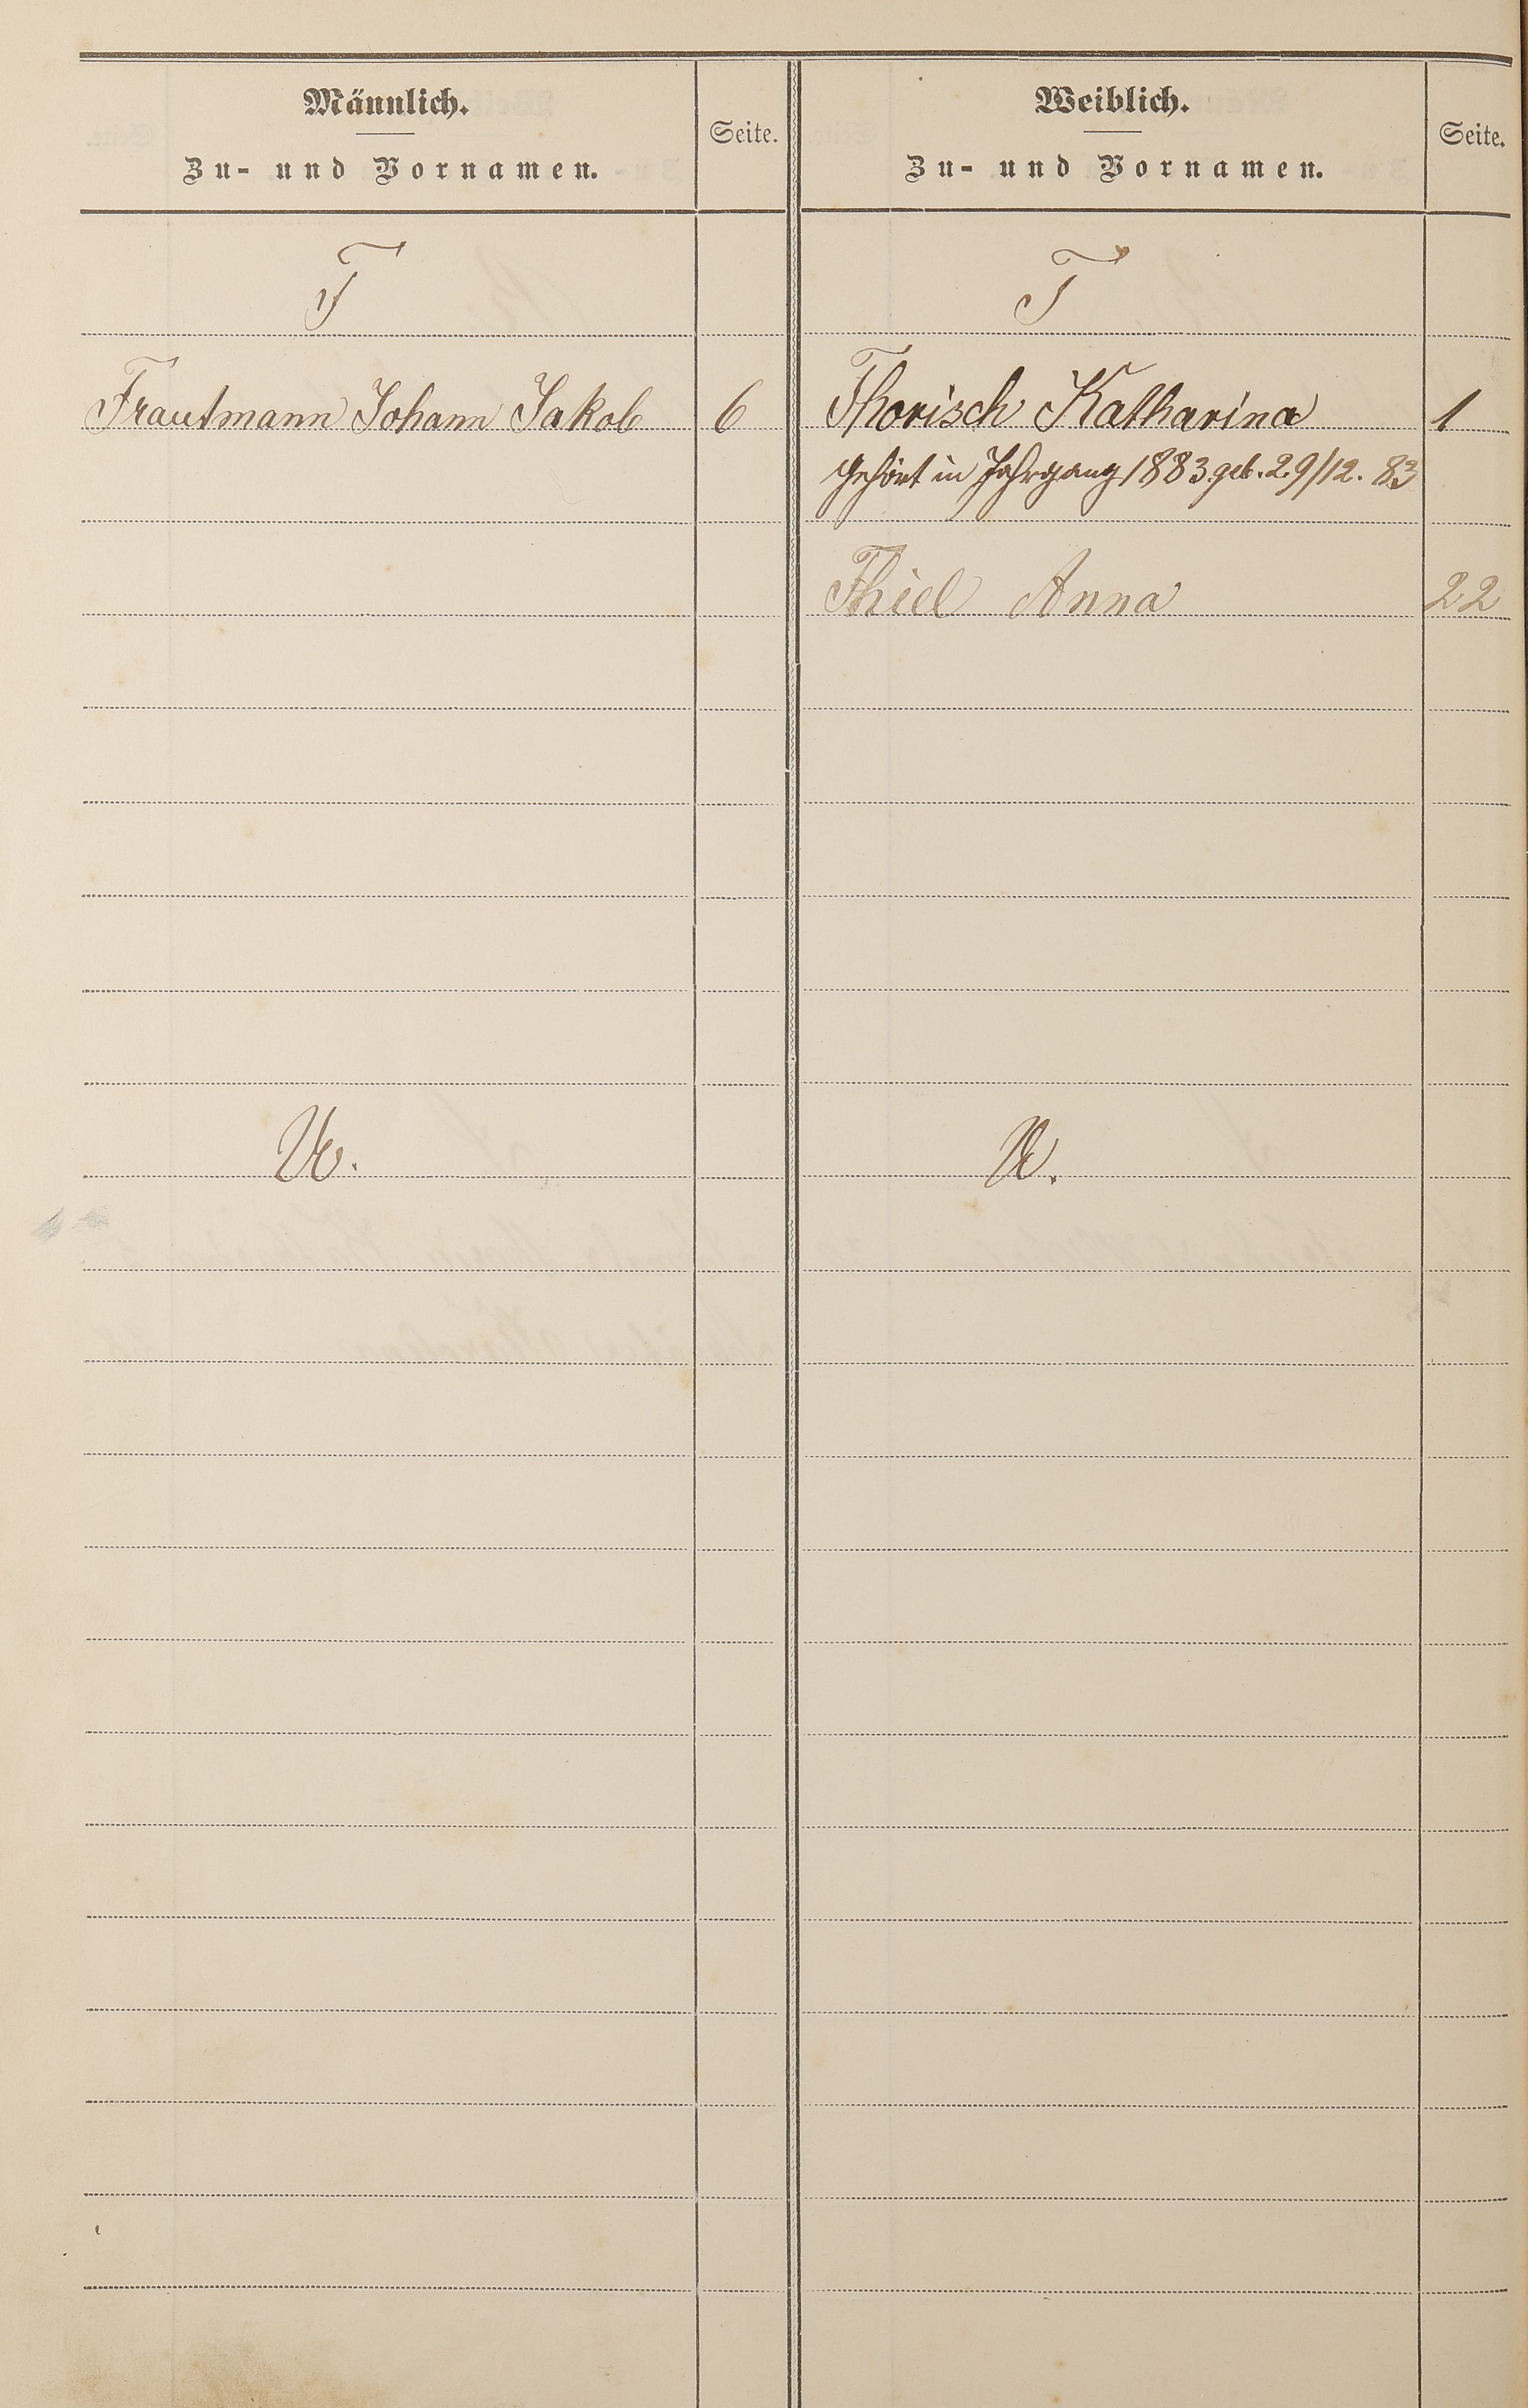 Männlich.
Zu- und Vornamen.
Seite.
Weiblich.
Zu- und Vornamen.
Seite.
T
T
Trautmann Johann Jakob 6
Thorisch Katharina 1
Gehört in Jahrgang 1883 geb. 29/12. 83
Thiel Anna 22
U.
U.